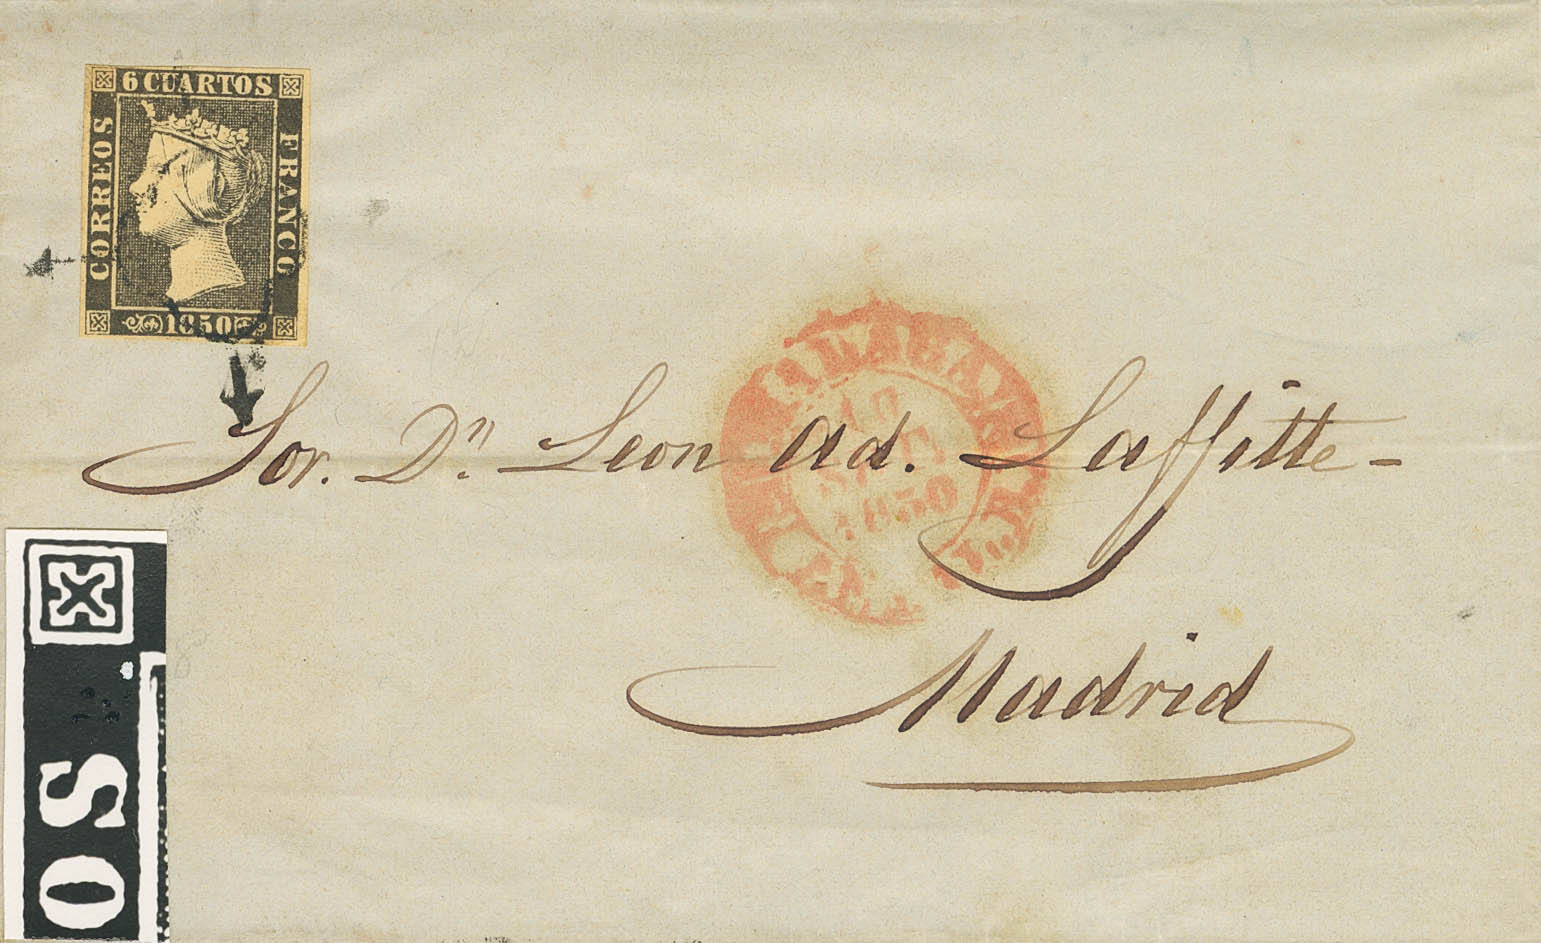 6 CUARTOS
CORREOS
FRANCO
1850
Sor. Dn. Leon Ad. Laffitte -
Madrid
1850
OS